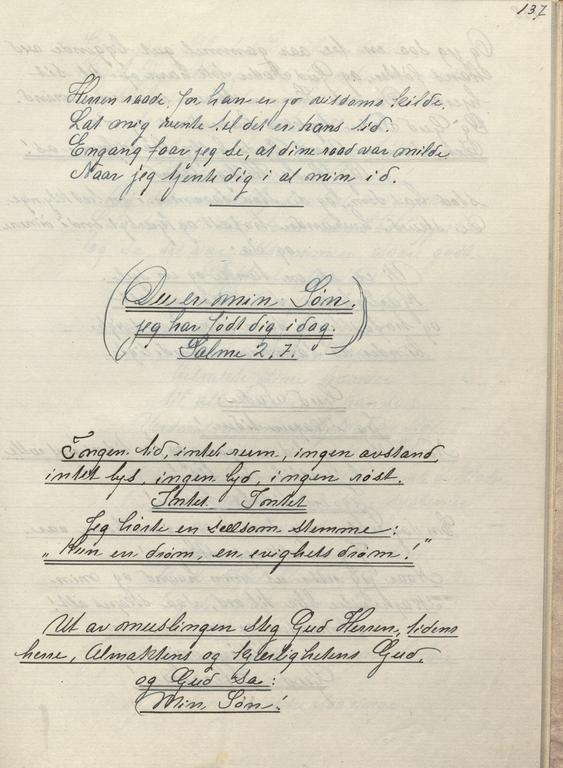 137
Herren raade, for han er jo visdoms kilde.
Lat mig vente til det er hans tid.
Engang faar jeg se, at dine raad var milde
Naar jeg tjente dig i al min id.
(Du er min Søn,
jeg har født dig idag.
Salme 2, 7.)
Ingen tid, intet rum, ingen avstand,
intet lys, ingen lyd, ingen røst.
Intet Intet
Jeg hørte en sælsom stemme:
"Kun en drøm, en evighets drøm!"
Ut av muslingen steg Gud Herren, tidens
herre, Almaktens og kjærlighetens Gud,
og Gud sa:
Min Søn!